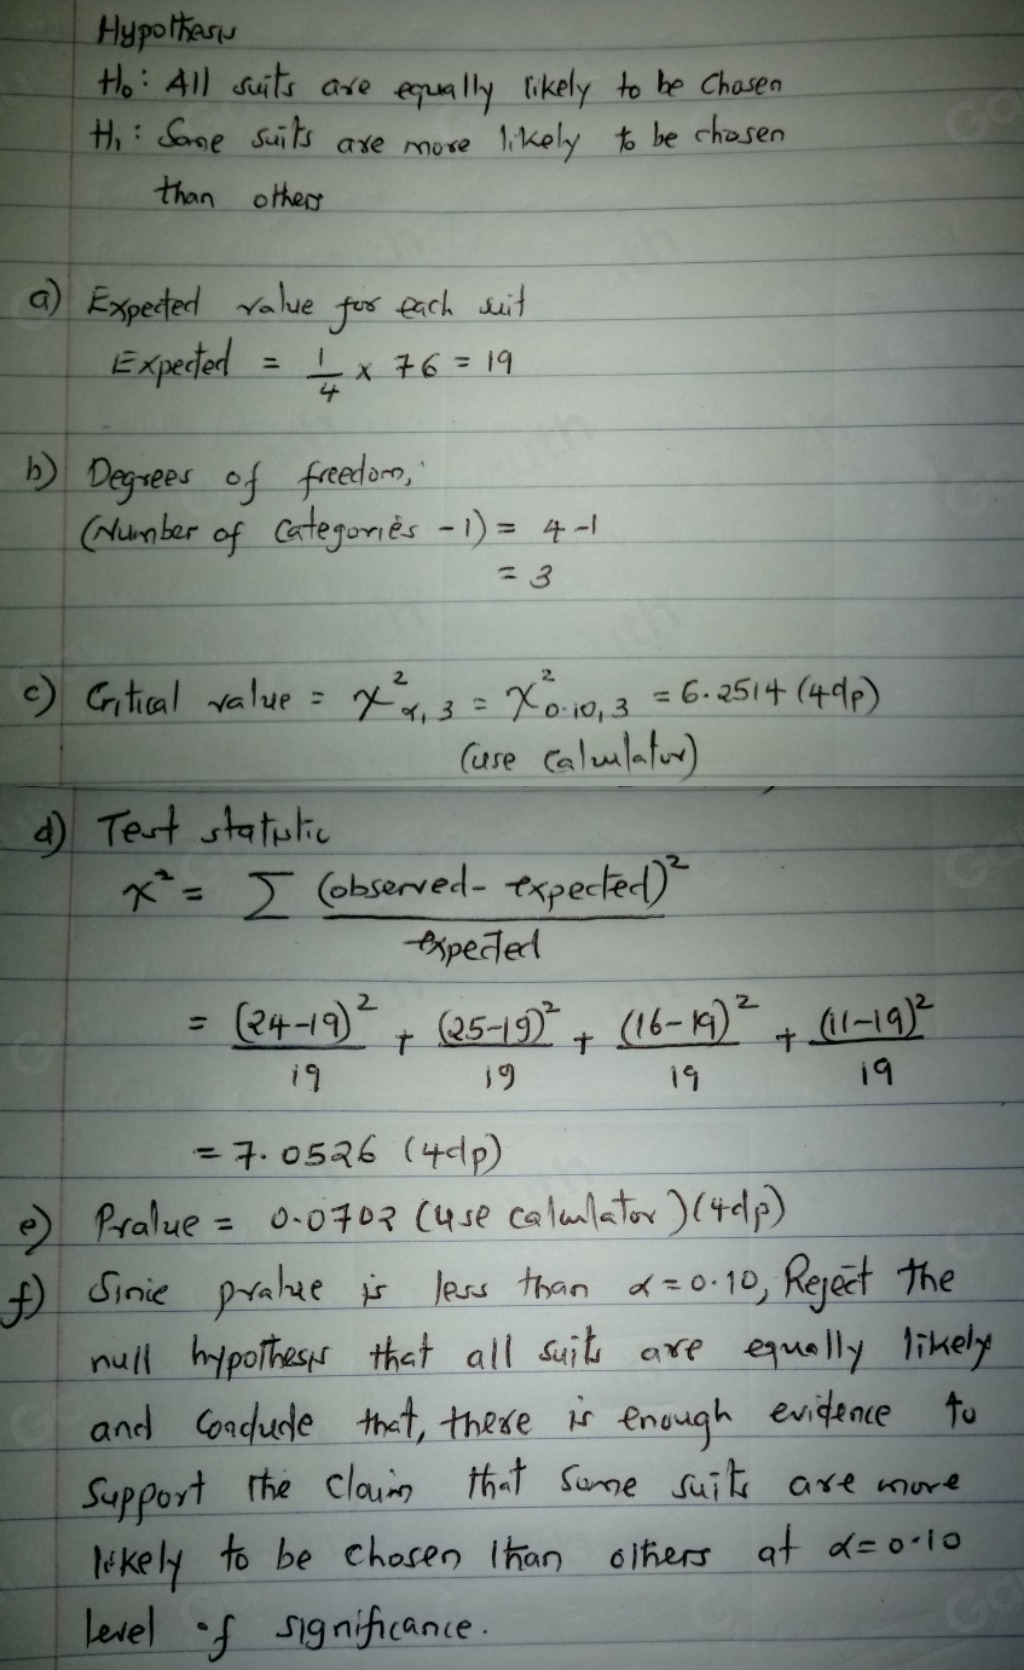 Hypothesis
H₀: All suits are equally likely to be chosen
H₁: Some suits are more likely to be chosen
than others
a) Expected value for each suit
Expected = 1/4 × 76 = 19
b) Degrees of freedom,
(Number of Categories - 1) = 4 - 1
= 3
c) Critical value = χ²α,3 = χ²0.10,3 = 6.2514 (4dp)
(use calculator)
d) Test statistic
χ² = Σ (observed - expected)² / expected
= (24-19)²/19 + (25-19)²/19 + (16-19)²/19 + (11-19)²/19
= 7.0526 (4dp)
e) Pvalue = 0.0702 (use calculator) (4dp)
f) Since pvalue is less than α = 0.10, Reject the
null hypothesis that all suits are equally likely
and conclude that, there is enough evidence to
support the claim that some suits are more
likely to be chosen than others at α = 0.10
level of significance.